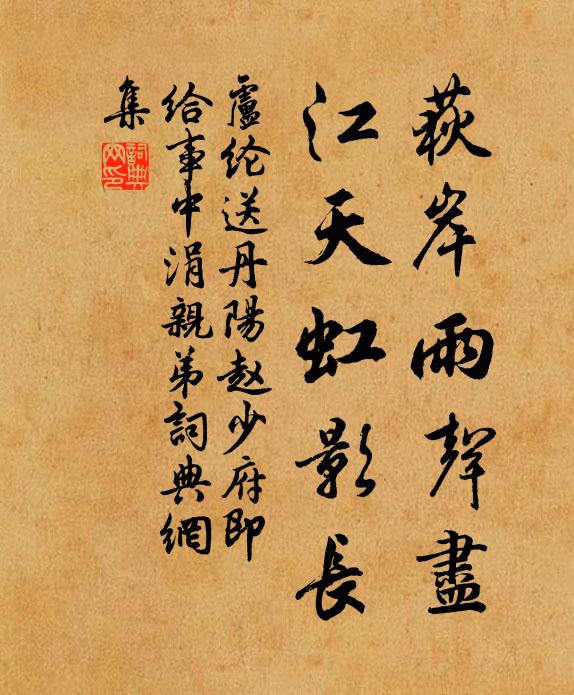 荻岸雨聲盡
江天虹影長
盧纶送丹陽赵少府即
给事中涓親弟詞典網
集
詞典
网印